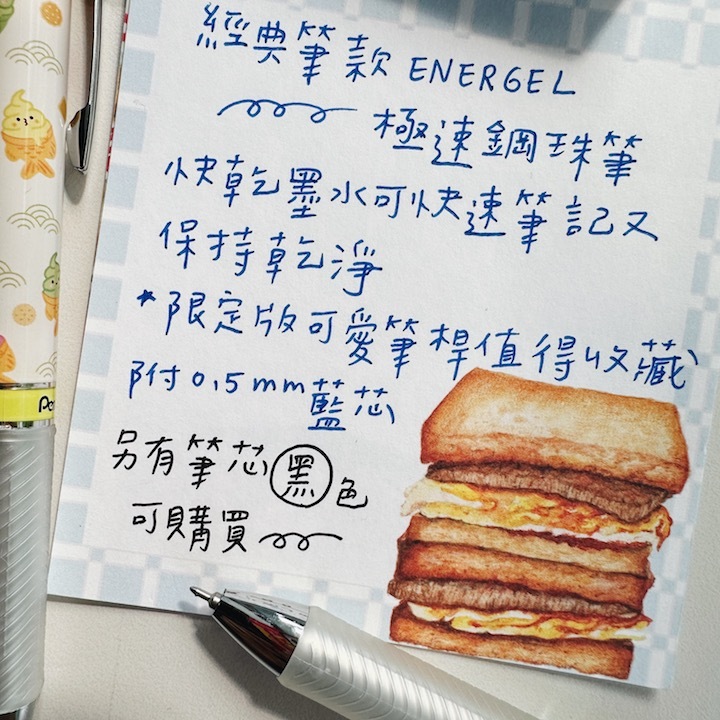 經典筆款 ENERGEL
極速鋼珠筆
快乾墨水可快速筆記又
保持乾淨
*限定版可愛筆桿值得收藏
附0.5mm藍芯
另有筆芯黑色
可購買
Pen